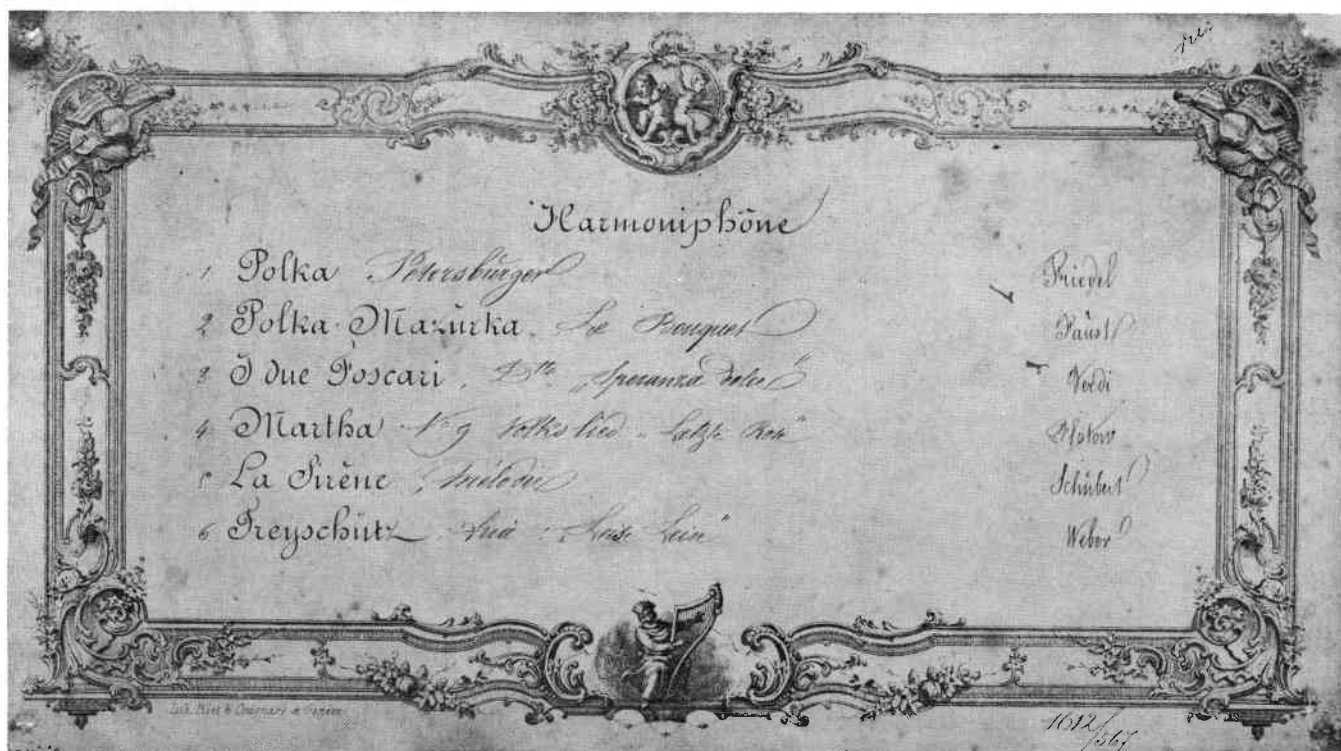 Harmoniphône
1 Polka Petersburger Friedel
2 Polka-Mazurka. Le Bouquet Faust
3 I due Foscari, Dtto „Speranza dolce“ Verdi
4 Martha No 9 Volkslied „Letzte Rose“ Flotow
5 La Sirène, Mélodie Schubert
6 Freyschütz. Aria „Leise Leise“ Weber
Lith. Pilet & Cougnard à Genève
1612/567